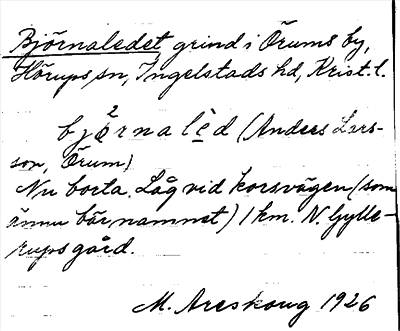 Björnaledet grind i Örums by,
Hörups sn, Ingelstads hd, Krist. l.
bjö²rnalèd (Anders Lars-
son, Örum)
Nu borta. Låg vid korsvägen (som
ännu bär namnet) 1 km. N. Gylle-
rups gård.
M. Areskoug 1926